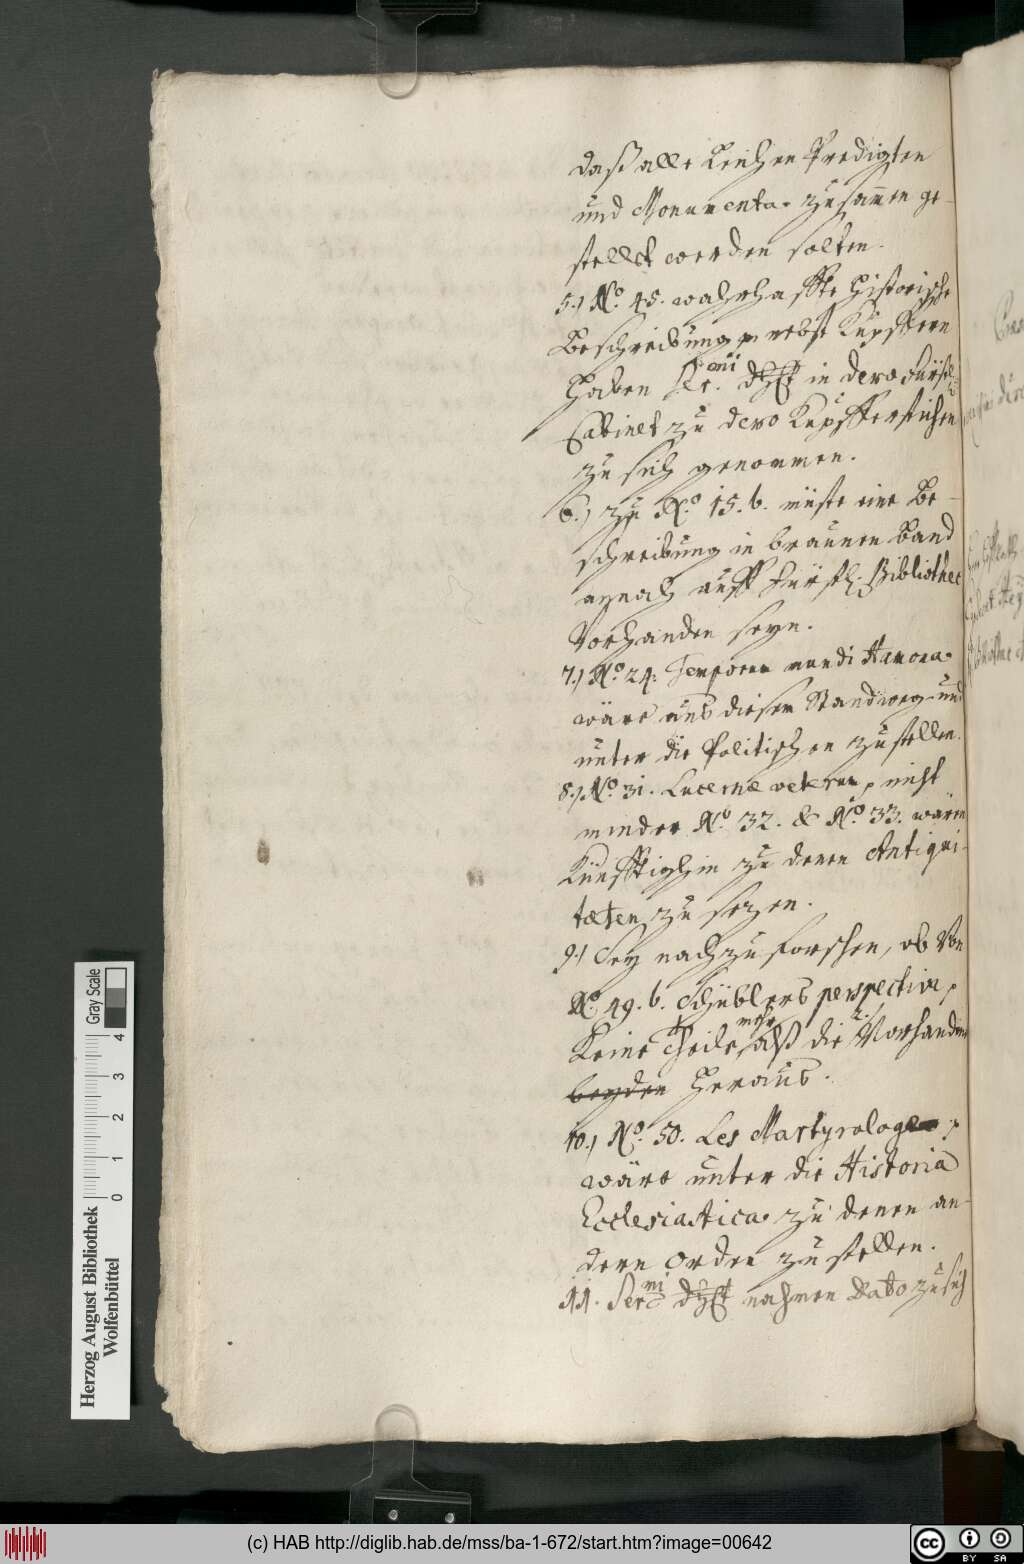 daß alle Leichen Predigten
und Monumenta zusam̄en ge-
stellet werden solten.
5.) No. 45. wahrhaffte Historische
Beschreibung nebst Kupffern
haben Ser.mi dhlt in dero Fürstl.
Cabinet zu dero Kupfferstichen
zu sich genommen.
6.) zu No. 15. b. müste eine Be-
schreibung in braunen Band
annoch auff Fürstl. Bibliothec
Vorhanden seyn.
7.) No. 24. Temporum mundi Harmonia
wäre aus diesem Stand weg und
unter die Politischen zu stellen.
8.) No. 31. Lucernæ veterum, nicht
minder No. 32. & No. 33. wären
Künfftighin zu denen Antiqui-
tæten zu sezen.
9.) Sey nachzuforschen, ob von
No. 49. b. Schüblers perspectiva,
Keine Theile mehr alß die 2. Vorhandene
beyden heraus.
10.) No. 50. Les Martyrologe
wäre unter die Historia
Ecclesiastica zu denen an-
dern Orden zu stellen.
11. Ser.mi dhlt nahmen Dato zu sich
Herzog August Bibliothek
Wolfenbüttel
Gray Scale
0 1 2 3 4
(c) HAB http://diglib.hab.de/mss/ba-1-672/start.htm?image=00642
cc BY SA